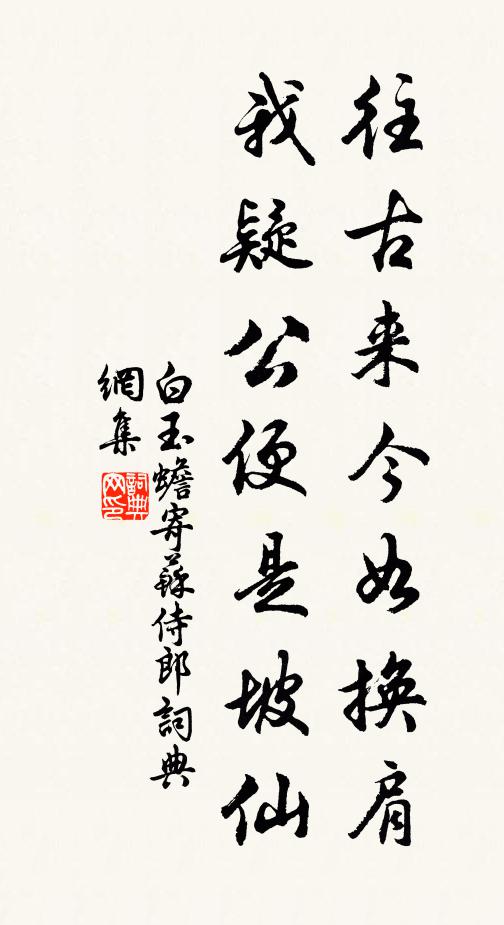 往古来今如换肩
我疑公便是坡仙
白玉蟾寄蘇侍郎詞典
網集
詞典网印